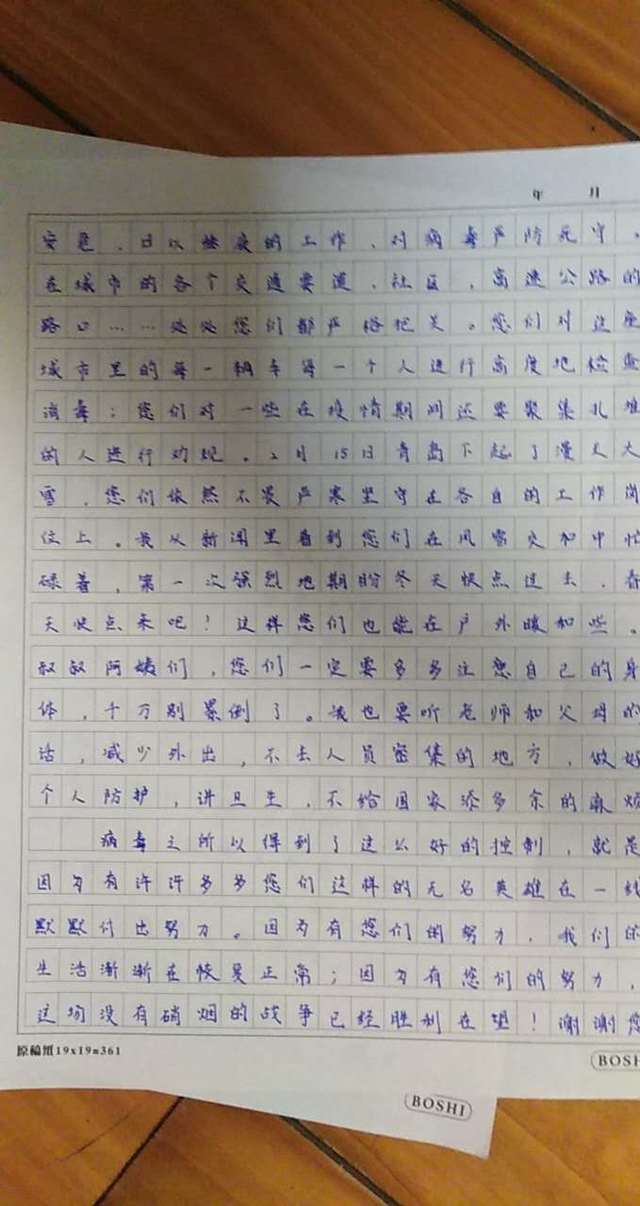 年 月
安危，日以继夜的工作，对病毒严防死守，
在城市的各个交通要道，社区，高速公路的
路口……处处您们都严格把关。您们对这座
城市里的每一辆车每一个人进行高度地检查
消毒；您们对一些在疫情期间还要聚集扎堆
的人进行劝说。2月15日青岛下起了漫天大
雪，您们依然不畏严寒坚守在各自的工作岗
位上。我从新闻里看到您们在风雪交加中忙
碌着，第一次强烈地期盼冬天快点过去，春
天快点来吧！这样您们也能在户外暖和些。
叔叔阿姨们，您们一定要多多注意自己的身
体，千万别累倒了。我也要听老师和父母的
话，减少外出，不去人员密集的地方，做好
个人防护，讲卫生，不给国家添多余的麻烦
病毒之所以得到了这么好的控制，就是
因为有许许多多您们这样的无名英雄在一线
默默付出努力。因为有您们的努力，我们的
生活渐渐在恢复正常；因为有您们的努力，
这场没有硝烟的战争已经胜利在望！谢谢您
原稿纸19x19=361
BOSHI
BOSHI